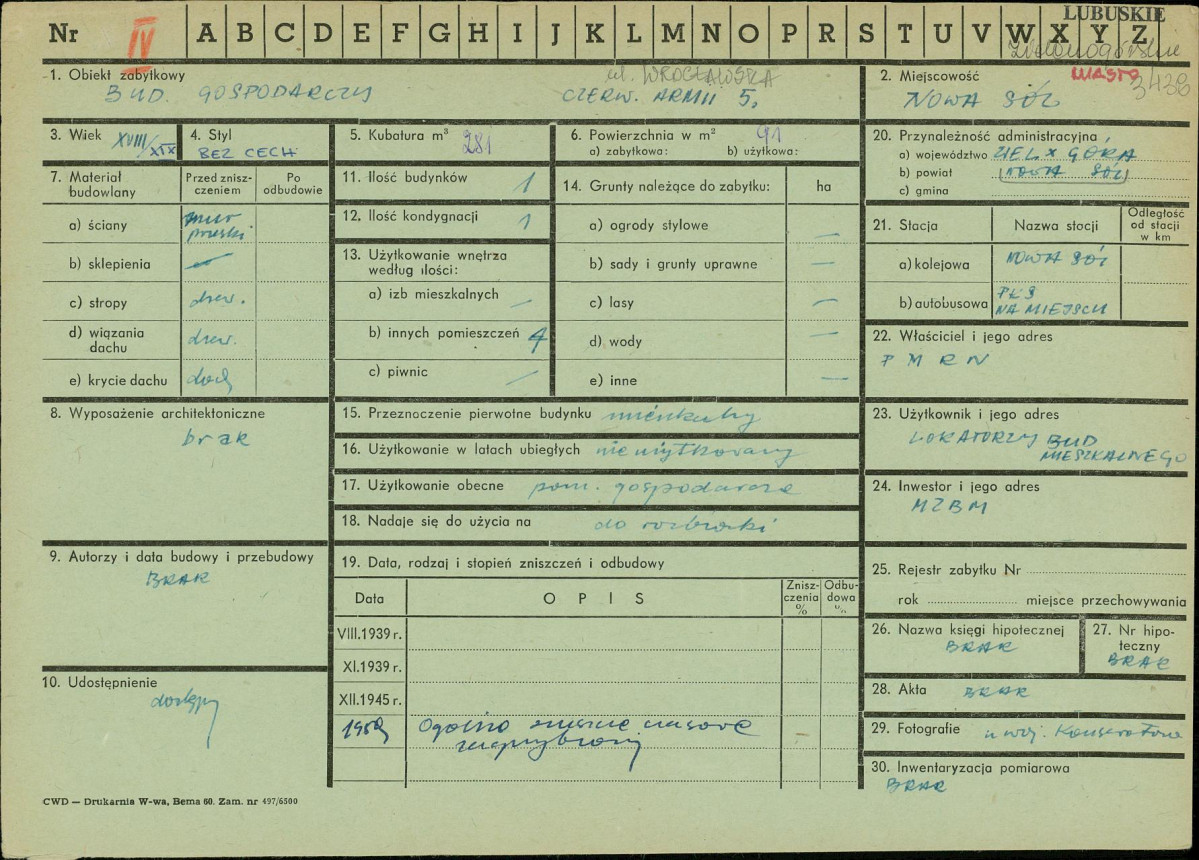 Nr IV A B C D E F G H I J K L M N O P R S T U V W X Y Z
LUBUSKIE
Zielonogórskie
1. Obiekt zabytkowy
BUD. GOSPODARCZY
ul. WROCŁAWSKA
CZERW. ARMII 5,
2. Miejscowość
MIASTO
3438
NOWA SÓL
3. Wiek XVIII/XIX
4. Styl
BEZ CECH
5. Kubatura m³ 281
6. Powierzchnia w m² 91
a) zabytkowa: b) użytkowa:
20. Przynależność administracyjna
a) województwo ZIEL. GÓRA
b) powiat (NOWA SÓL)
c) gmina
7. Materiał budowlany
Przed zniszczeniem
Po odbudowie
a) ściany mur pruski
b) sklepienia —
c) stropy drew.
d) wiązania dachu drew.
e) krycie dachu dach.
11. Ilość budynków 1
12. Ilość kondygnacji 1
13. Użytkowanie wnętrza
według ilości:
a) izb mieszkalnych —
b) innych pomieszczeń 4
c) piwnic —
14. Grunty należące do zabytku: ha
a) ogrody stylowe —
b) sady i grunty uprawne —
c) lasy —
d) wody —
e) inne —
21. Stacja Nazwa stocji Odległość od stacji w km
a) kolejowa NOWA SÓL
b) autobusowa PKS
NA MIEJSCU
22. Właściciel i jego adres
P M R N
8. Wyposażenie architektoniczne
brak
15. Przeznaczenie pierwotne budynku
16. Użytkowanie w latach ubiegłych nieużytkowany
17. Użytkowanie obecne pom. gospodarcze
18. Nadaje się do użycia na do rozbiórki
23. Użytkownik i jego adres
LOKATORZY BUD
MIESZKALNEGO
24. Inwestor i jego adres
MZBM
9. Autorzy i data budowy i przebudowy
BRAK
19. Data, rodzaj i stopień zniszczeń i odbudowy
Data OPIS Zniszczenia % Odbudowa %
VIII.1939 r.
XI.1939 r.
XII.1945 r.
1959 Ogólne
25. Rejestr zabytku Nr
rok miejsce przechowywania
26. Nazwa księgi hipotecznej
BRAK
27. Nr hipoteczny
BRAK
10. Udostępnienie
dostępny
28. Akta BRAK
29. Fotografie u woj. Konserwatora
30. Inwentaryzacja pomiarowa
BRAK
CWD — Drukarnia W-wa, Bema 60. Zam. nr 497/6500